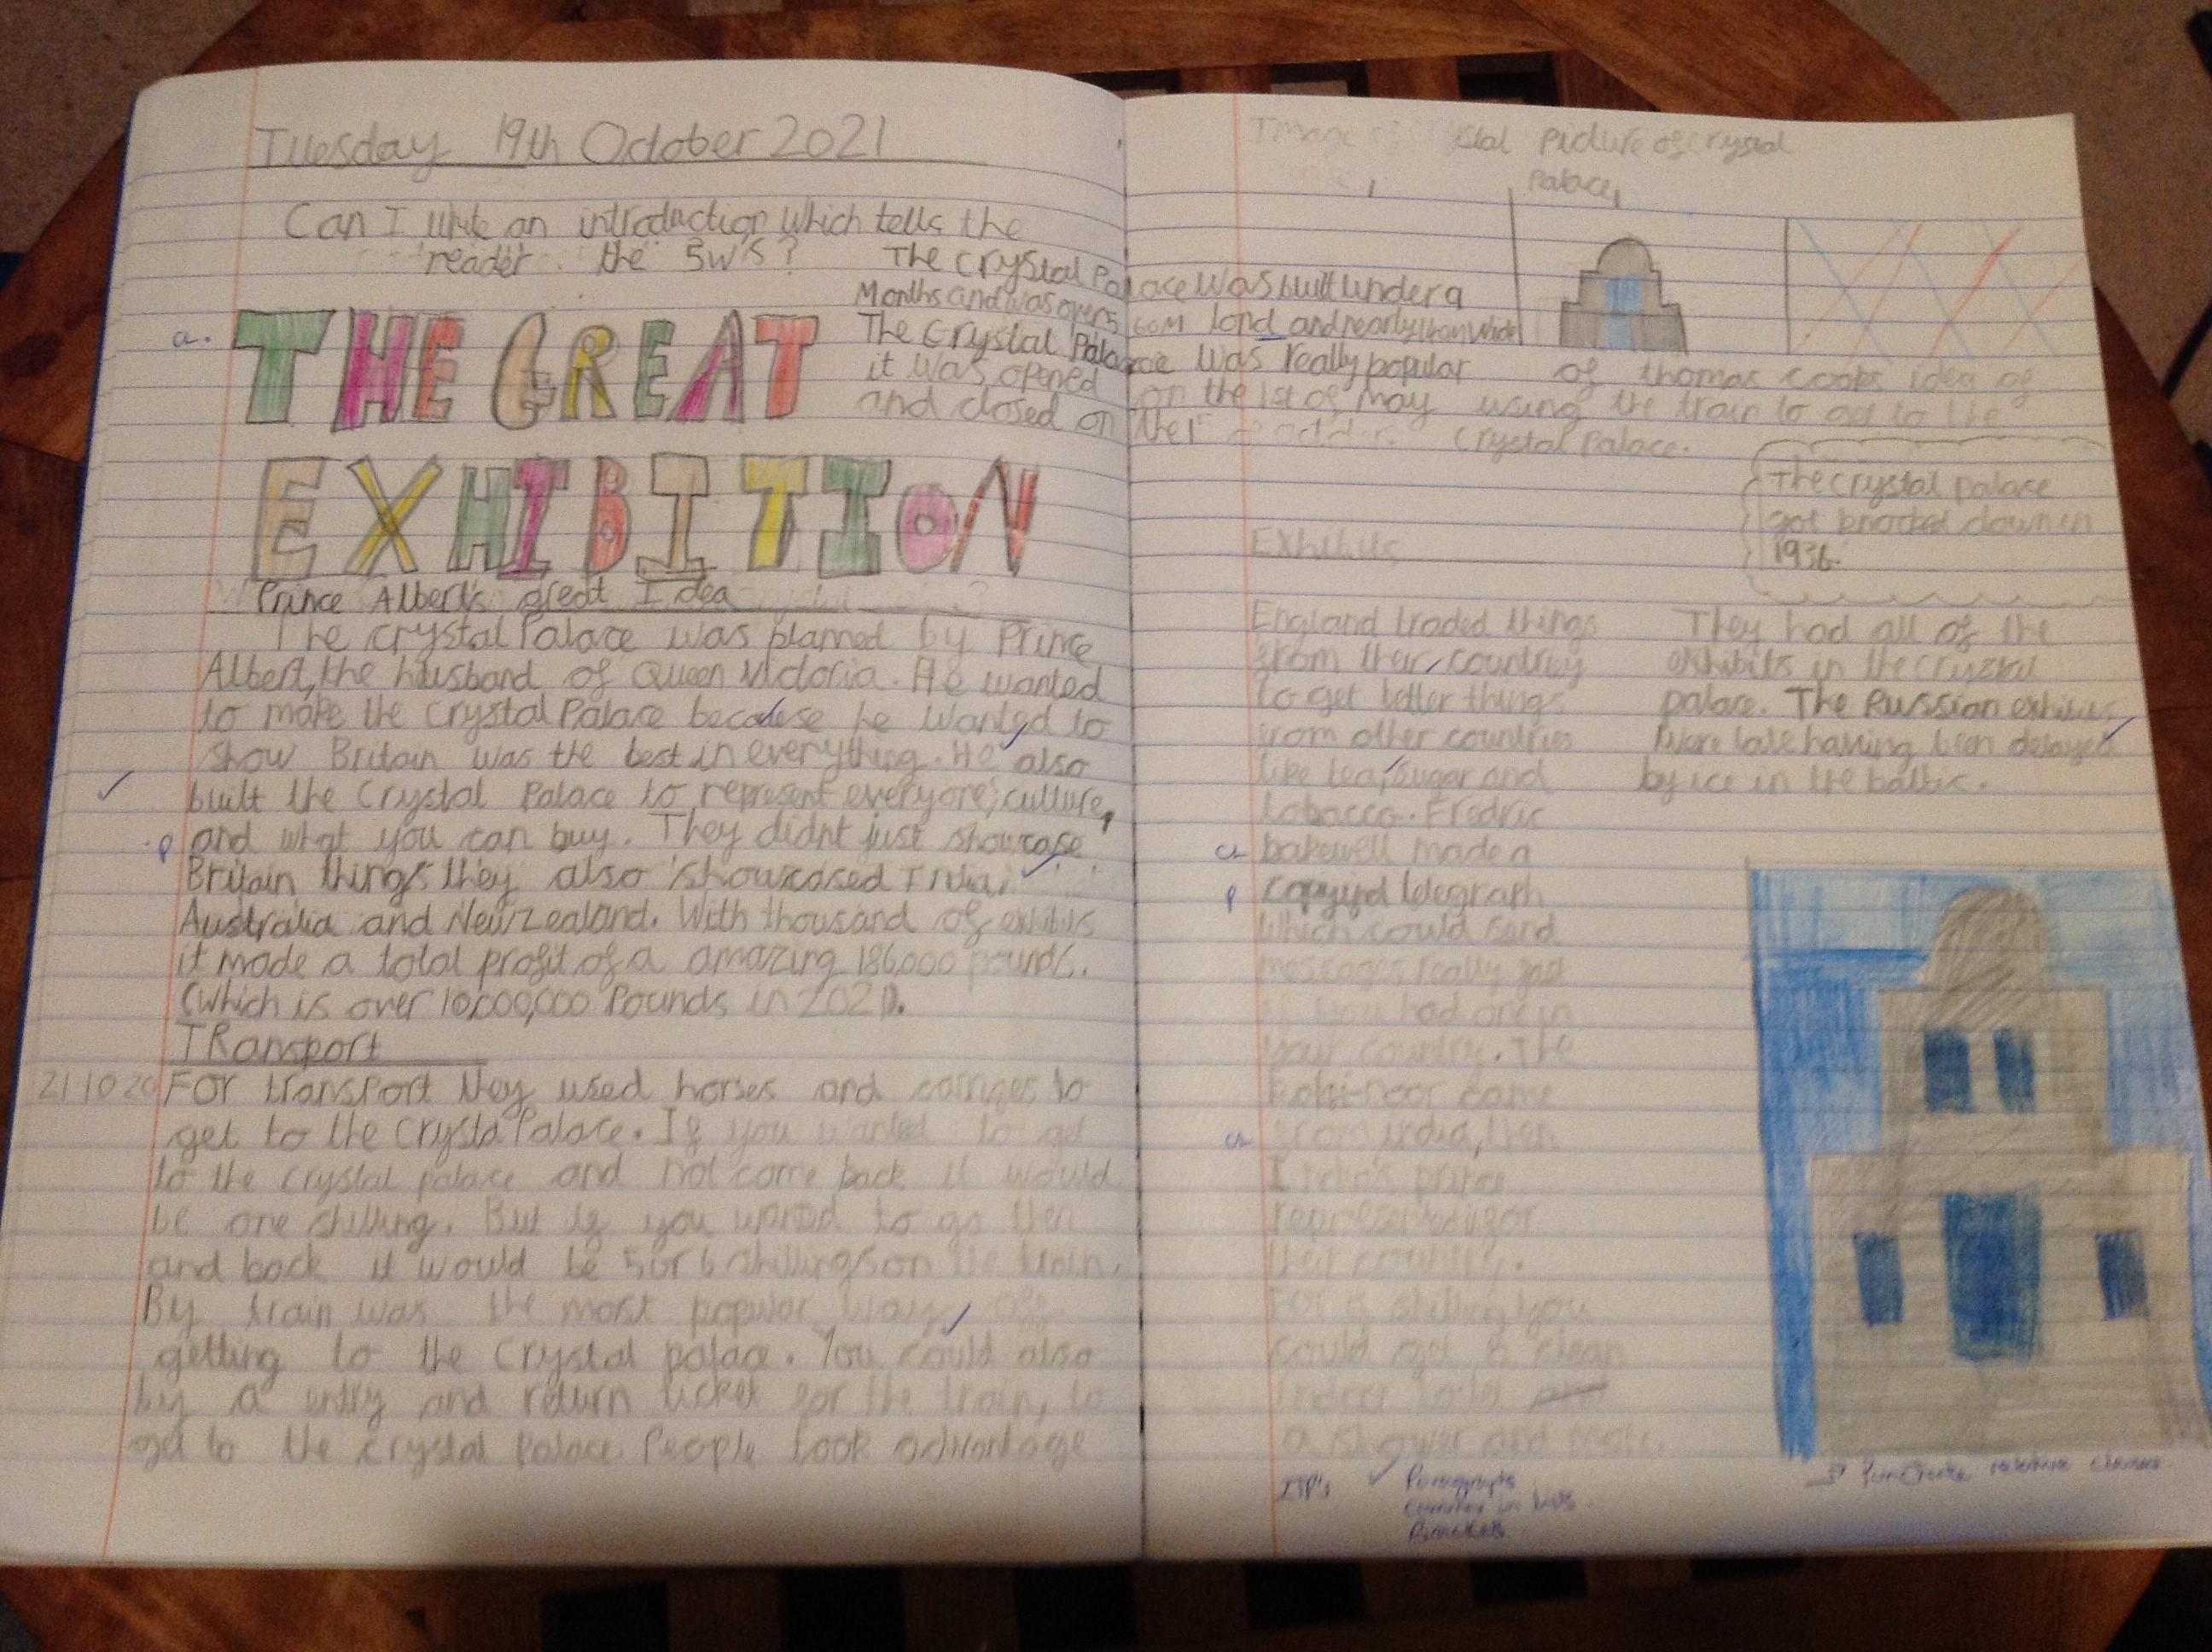 Tuesday 19th October 2021
Can I write an introduction which tells the
reader the 5W'S?
The Crystal Palace was built under 9
Months and was over 5 60M long and nearly Wide
The Crystal Palace was really popular
it was opened on the 1st of may
and closed on the
a.
THE GREAT
EXHIBITION
Prince Albert's great Idea
The Crystal Palace was planned by Prince
Albert, the husband of Queen Victoria. He wanted
to make the Crystal Palace becouse he wanted to
show Britain was the best in everything. He also
built the Crystal Palace to represent everyone, culture,
and what you can buy. They didnt just showcase
p
Britain things they also showcased India,
Australia and New Zealand. With thousand of exhibits
it made a total profit of a amazing 186,000 pounds.
(which is over 10,000,000 Pounds in 2021).
TRansport
21 10 20
For transport they used horses and carriges to
get to the Crysta Palace. If you wanted to get
to the Crystal palace and not come back it would
be one shilling. But if you wanted to go then
and back it would be 5 or 6 shillings on the train.
By train was the most popular way of
getting to the Crystal palace. You could also
by a entry and return ticket for the train, to
get to the Crystal Palace. People took advantage
Image of stal Picture of Crystal
Palace
of thomas cooks idea of
using the train to get to the
Crystal Palace.
The Crystal palace
got knocked down in
1936.
Exhibits
England traded things
from their country
to get better things
from other countries
like tea, sugar and
tobacco. Fredric
bakewell made a
p
telegraph
which could send
messages really fast
if you had one in
your country. The
Kohi-noor came
from india, then
India's prince
represented for
their country.
For a shilling you
could get a clean
a shower and
They had all of the
exhibits in the Crystal
palace. The Russian exhibits
Were late having been delayed
by ice in the baltic.
ITPs
Paragraphs
commas in lists
Brackets
Punctuate relative clauses.